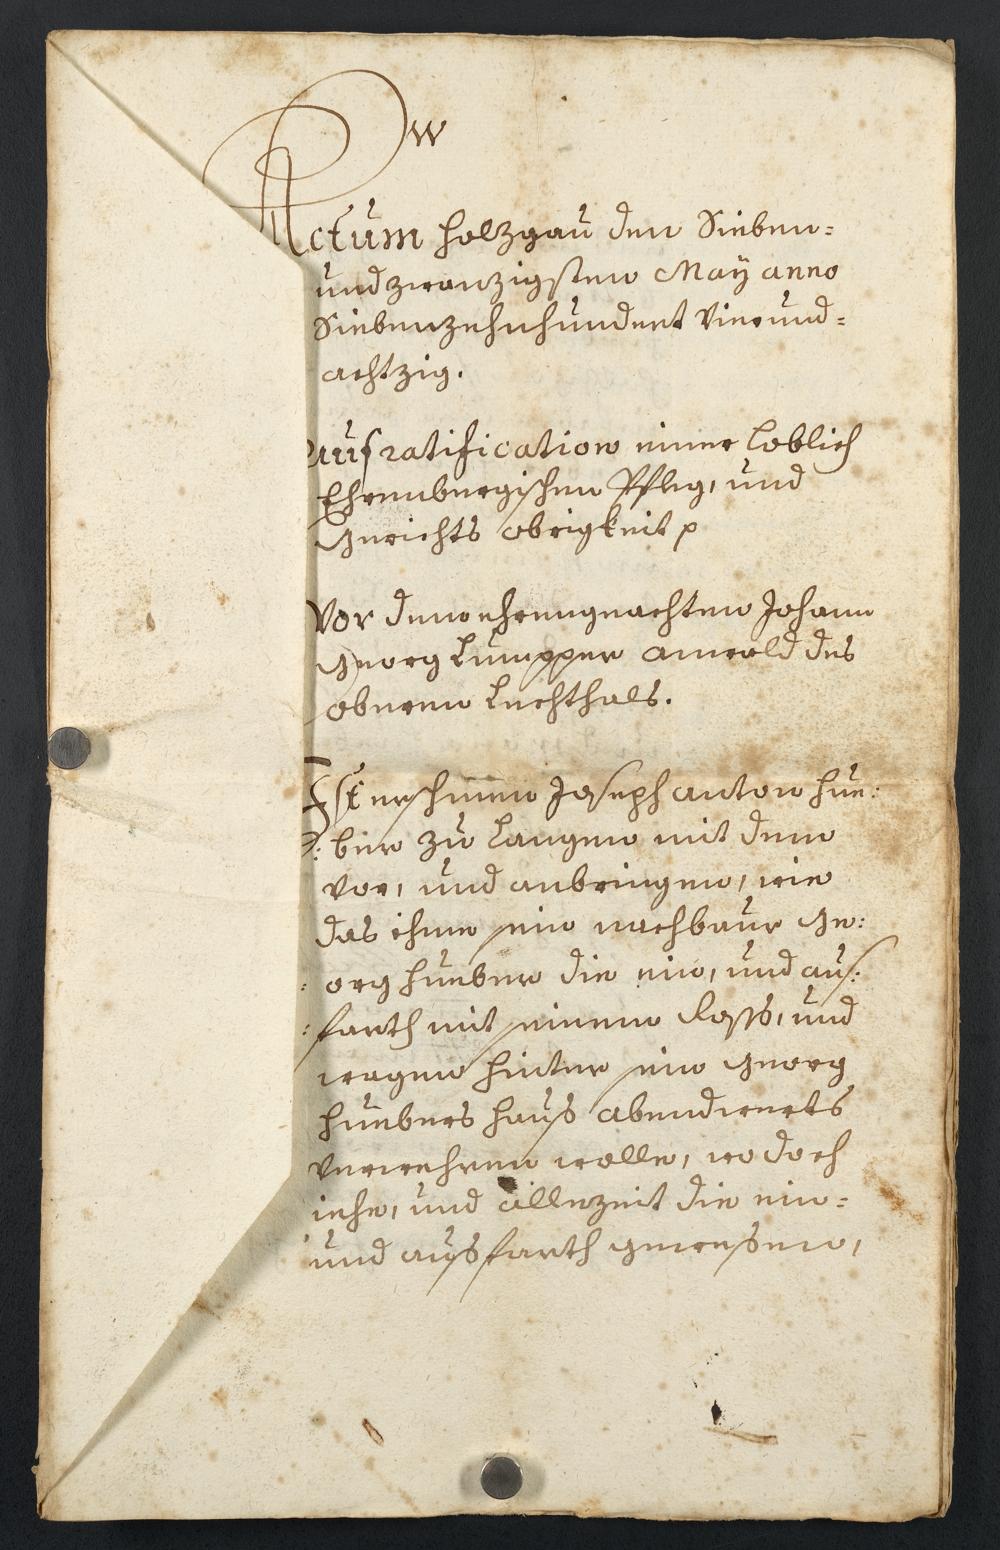 Actum Holzgaü den Sieben=
und zwanzigsten May anno
Siebenzehnhundert Vierund=
achtzig.
Auf ratification einer loblich
Ehrenburgischen Pfleg, und
Gerichts obrigkeit p
Vor dem ehrengeachten Johann
Georg Lumpper anwald des
oberen Lechthals.
Ist erschinen Joseph anton Hue:
:ber zu Langen mit dem
Vor, und anbringen, wie
das ihme sein nachbaur Ge:
:org Hueber die ein, und aus:
:farth mit seinem Ross, und
wagen hinter sein Georg
Huebers Haus abendwerts
Verwehren wolle, wo doch
iehe, und allezeit die ein=
und ausfarth gewesen,